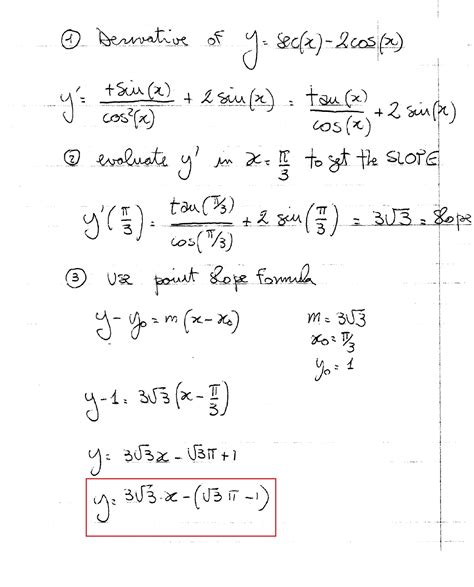 ① Derivative of y = sec(x) - 2cos(x)
y' = +sin(x)/cos²(x) + 2 sin(x) = tan(x)/cos(x) + 2 sin(x)
② evaluate y' in x = π/3 to get the SLOPE
y'(π/3) = tan(π/3)/cos(π/3) + 2 sin(π/3) = 3√3 = Slope
③ Use point slope formula
y - y₀ = m (x - x₀)
m = 3√3
x₀ = π/3
y₀ = 1
y - 1 = 3√3 (x - π/3)
y = 3√3x - √3π + 1
y = 3√3·x - (√3 π - 1)